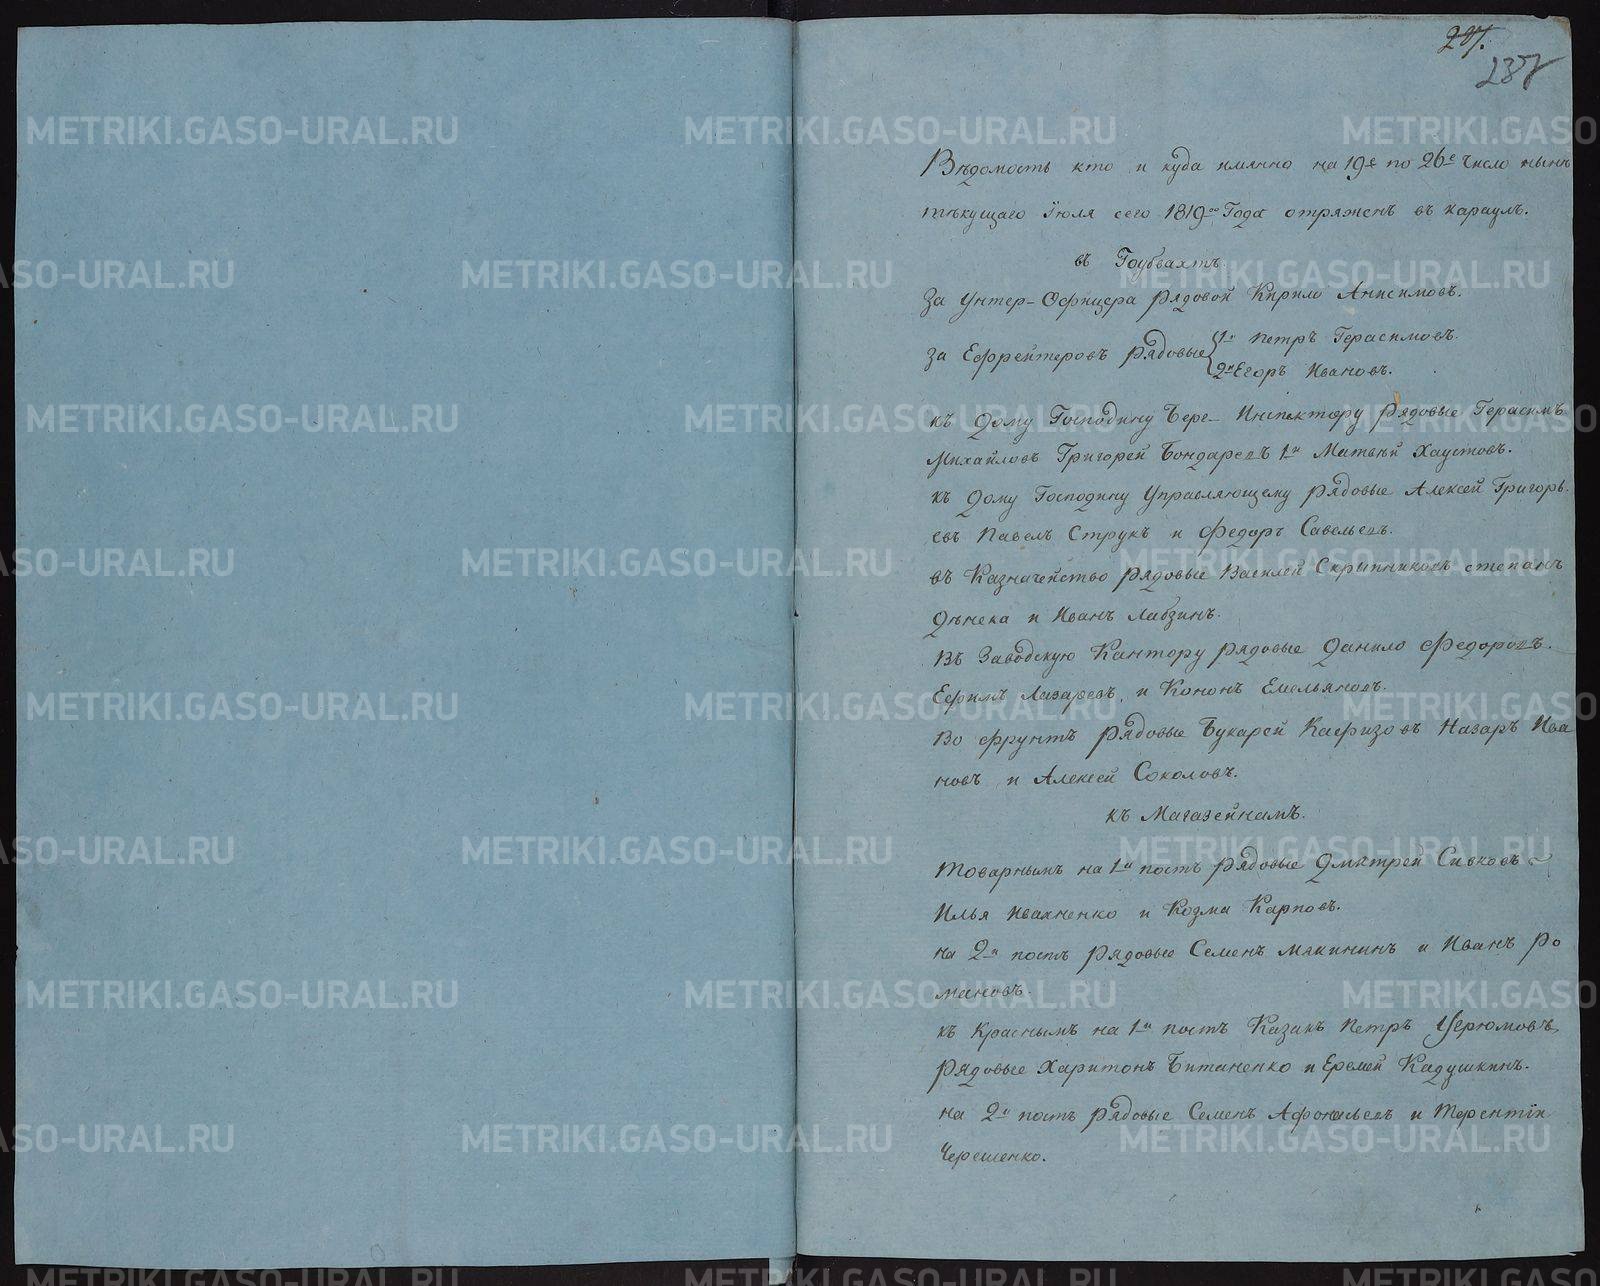 297.
237
Вѣдомость кто и куда имянно на 19е по 26е число нынѣ
тѣкущаго Іюля сего 1819го Года отряженъ въ караулъ.
въ Гоубвахтъ.
За Унтер-Офицера рядовой Кирило Анисимовъ.
За Ефрейтеровъ рядовые 1й Петръ Герасимовъ.
2й Егоръ Ивановъ.
къ дому Господину Бере-Инспектору рядовые Герасимъ
Михайловъ Григорей Бондаревъ 1й Матвѣй Хаустовъ.
къ дому Господину Управляющему рядовые Алексей Григорь
евъ Павелъ Струкъ и Федоръ Савельевъ.
въ Казначейство рядовые Василей Скрипниковъ степанъ
Дѣнека и Иванъ Лабзинъ.
Въ Заводскую Кантору рядовые Данило Федоровъ.
Ефимъ Лазаревъ, и Кононъ Емельяновъ.
Во фрунтъ рядовые Букарей Кафизовъ Назаръ Ива
новъ и Алексей Соколовъ.
къ Магазейнамъ.
Товарнымъ на 1й постъ рядовые Дмитрей Сивковъ
Илья Ивахненко и Козма Карповъ.
на 2й постъ рядовые Семенъ Мякининъ и Иванъ Ро
мановъ.
къ Краснымъ на 1й постъ Казакъ Петръ Черюмовъ
рядовые Харитонъ Битаненко и Еремей Кадушкинъ.
на 2й постъ рядовые Семенъ Афонасьевъ и Терентій
Черешенко.
METRIKI.GASO-URAL.RU